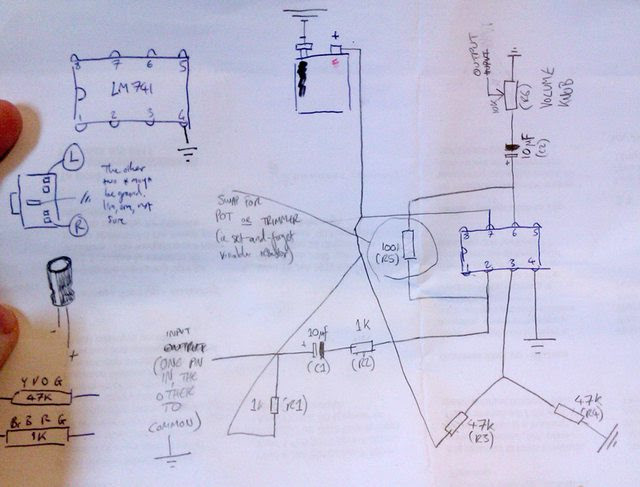 8 7 6 5
LM741
1 2 3 4
L
The other
two
be ground.
I'm, um, not
sure
R
-
+
Y V O G
47K
B G B R G
1K
+
SWAP FOR
POT OR TRIMMER
(ie set-and-forget
variable resistor)
100k
(R5)
OUTPUT
10K
(R6)
VOLUME
KNOB
10µF
(C2)
+
8 7 6 5
1 2 3 4
INPUT
OUTPUT
(ONE PIN
IN, THE
OTHER
TO
COMMON)
10µF
+
(C1)
1K
(R2)
1k
(R1)
47K
(R3)
47K
(R4)